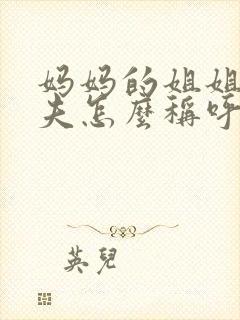 妈妈的姐姐
夫怎麼稱呼
英兒